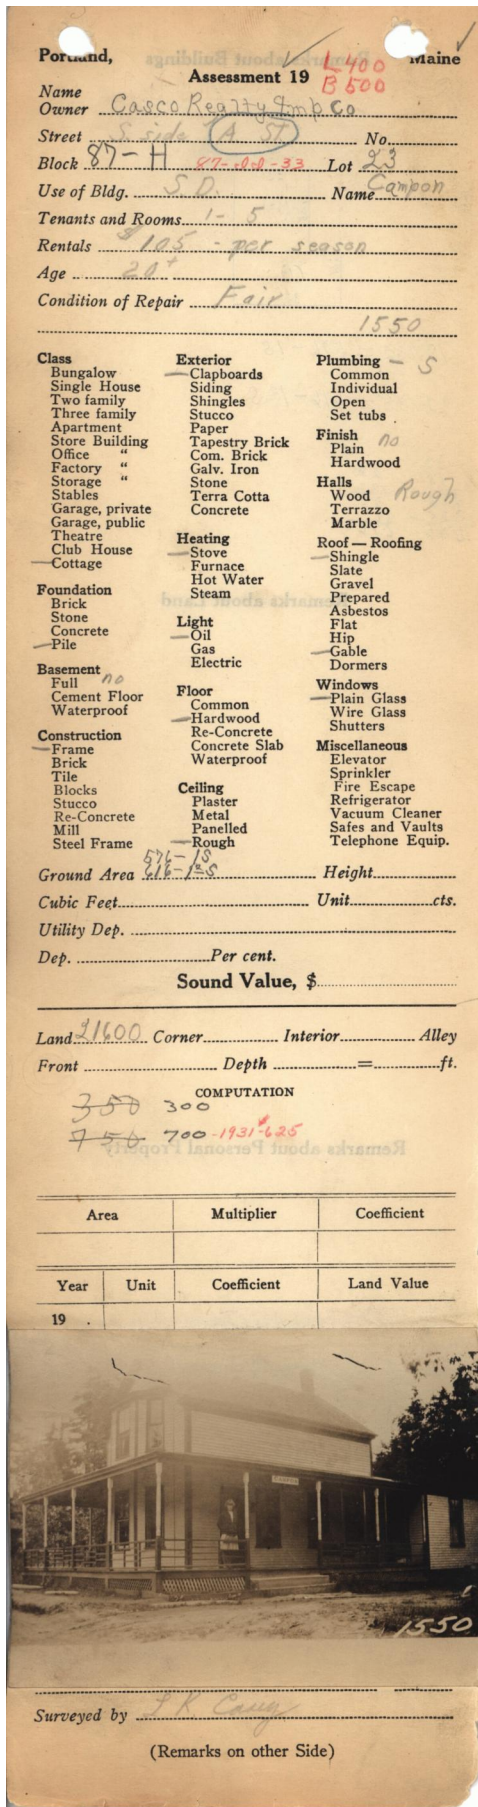 Portland, Maine
L 400
Assessment 19
B 500
Name
Owner Casco Realty Imp Co
Street S. side A St No.
Block 87-H 87-II-33 Lot 23
Use of Bldg. S.D. Name Campon
Tenants and Rooms 1 - 5
Rentals $105 - per season
Age 20+
Condition of Repair Fair
1550
Class
Bungalow
Single House
Two family
Three family
Apartment
Store Building
Office "
Factory "
Storage "
Stables
Garage, private
Garage, public
Theatre
Club House
Cottage
Foundation
Brick
Stone
Concrete
Pile
Basement
Full no
Cement Floor
Waterproof
Construction
Frame
Brick
Tile
Blocks
Stucco
Re-Concrete
Mill
Steel Frame
Exterior
Clapboards
Siding
Shingles
Stucco
Paper
Tapestry Brick
Com. Brick
Galv. Iron
Stone
Terra Cotta
Concrete
Heating
Stove
Furnace
Hot Water
Steam
Light
Oil
Gas
Electric
Floor
Common
Hardwood
Re-Concrete
Concrete Slab
Waterproof
Ceiling
Plaster
Metal
Panelled
Rough
Plumbing - S
Common
Individual
Open
Set tubs
Finish no
Plain
Hardwood
Halls
Wood Rough
Terrazzo
Marble
Roof — Roofing
Shingle
Slate
Gravel
Prepared
Asbestos
Flat
Hip
Gable
Dormers
Windows
Plain Glass
Wire Glass
Shutters
Miscellaneous
Elevator
Sprinkler
Fire Escape
Refrigerator
Vacuum Cleaner
Safes and Vaults
Telephone Equip.
576-1S
Ground Area 616-1½S Height
Cubic Feet Unit cts.
Utility Dep.
Dep. Per cent.
Sound Value, $
Land 21600 Corner Interior Alley
Front Depth = ft.
COMPUTATION
350 300
750 700 -1931-625
Remarks about Personal Property
Area Multiplier Coefficient
Year Unit Coefficient Land Value
19 .
1550
Surveyed by L K Carey
(Remarks on other Side)